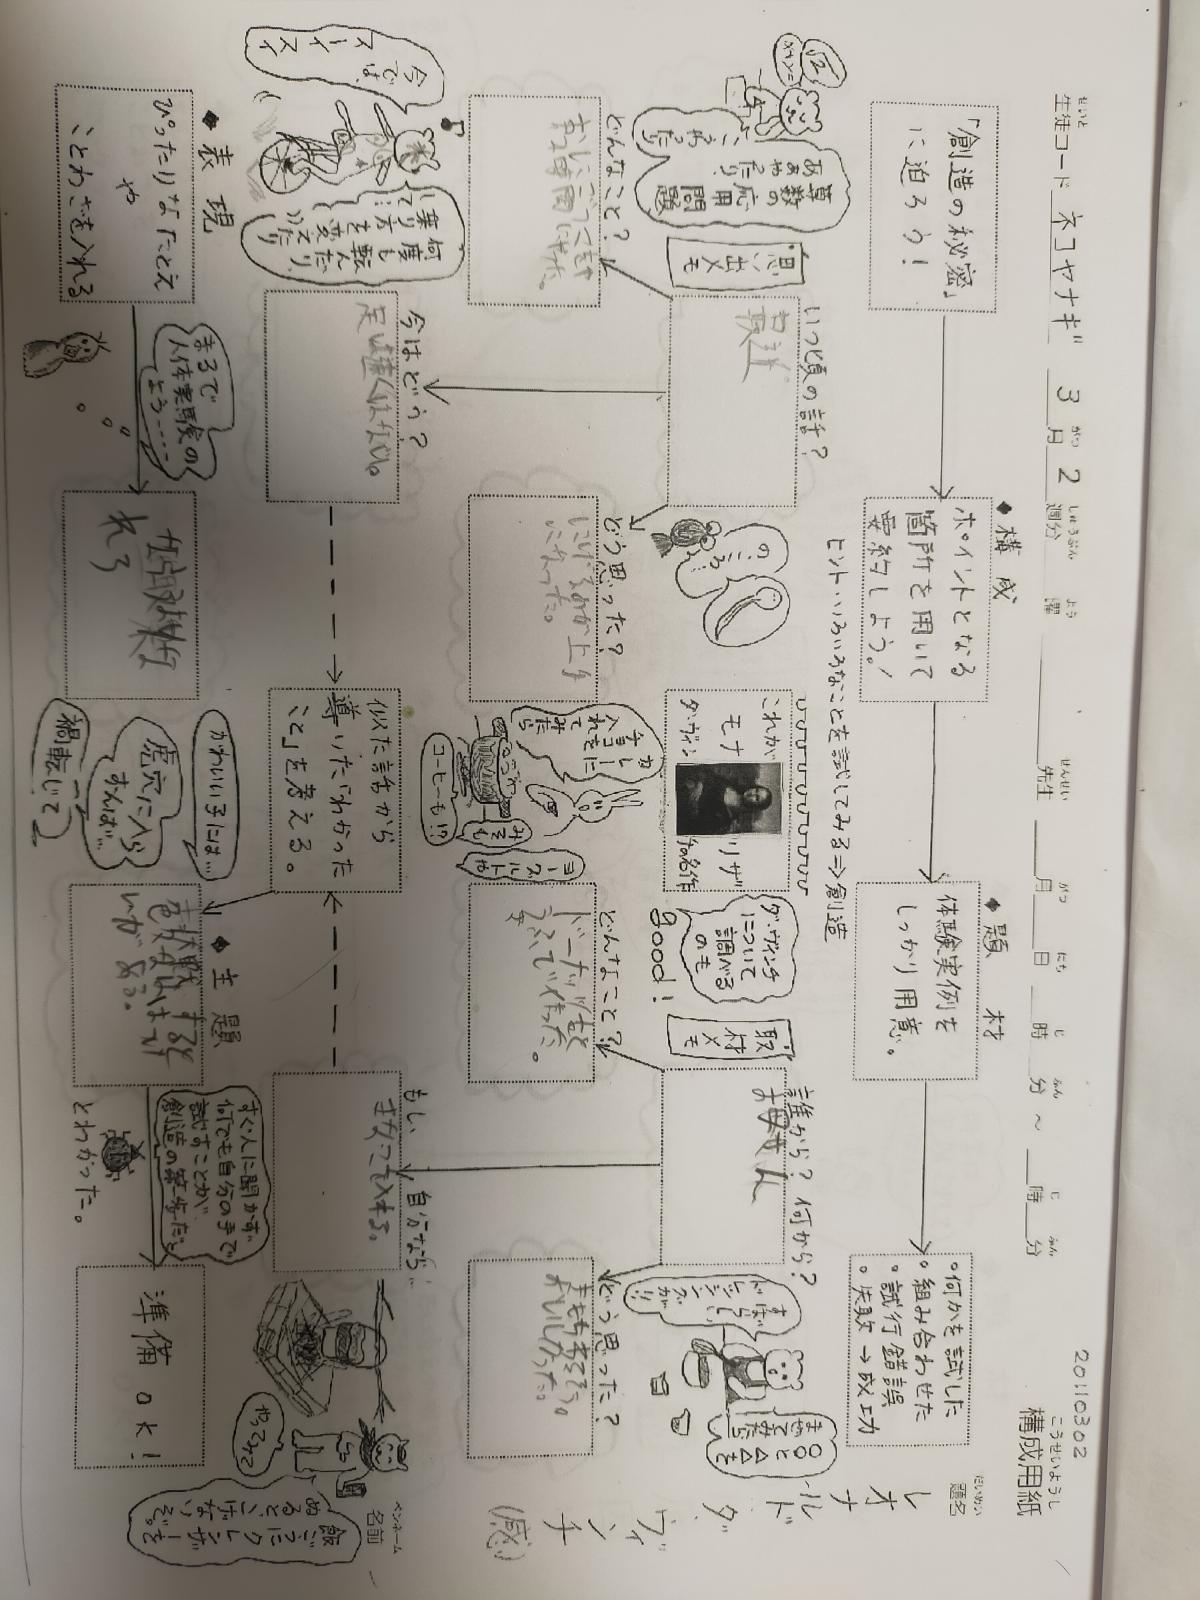 20110302
こうせいようし
構成用紙
せいと
生徒コード ネコヤナギ 3月 2週分 曜 先生 月 日 時 分 ~ 時 分
がつ しゅうぶん よう せんせい がつ にち じ ふん じ ふん
だいめい
題名
レオナルド
ダ・ヴィンチ
(感)
ペンネーム
名前
「創造の秘密」
に迫ろう!
◆構成
ポイントとなる
箇所を用いて
要約しよう!
ヒント・いろいろなことを試してみる⇒創造
◆題材
体験実例を
しっかり用意。
•何かを試しに
•組み合わせた
•試行錯誤
•失敗→成功
算数の応用問題
ああやったり
こうやったり
思い出メモ
いつ頃の話?
最近
のっ
これが
モナ
リザ
ダ・ヴィン
チの名作
ダ・ヴィンチ
について
調べる
のも
good!
取材メモ
誰から? 何から?
お母さん
すばらしい
レーズンが!!
○と△を
まぜてみたら
どんなこと?
どう思った?
カレーに
チョコを
入れてみたら
みそも
ヨーグルトは
コーヒーも!?
どんなこと?
作った。
どう思った?
おいしかった。
今では
スーイスイ
何度も転んだり、
乗り方を変えてたり
して…
今はどう?
似た話から
導いた「わかった
こと」を考える。
もし 自分なら…
やってみて
飯ごうにクレンザーを
ぬるとこげない
ぞ。
◆表現
ぴったりなたとえ
や
ことわざを入れる
まるで
人体実験の
よう----
かわいい子には…
虎穴に入ら
ずんば…
禍転じて
◆主題
挑戦すると
がある。
とわかった。
すぐ人に聞かず
何でも自分の手で
試すことが
創造の第一歩だ。
準備OK!